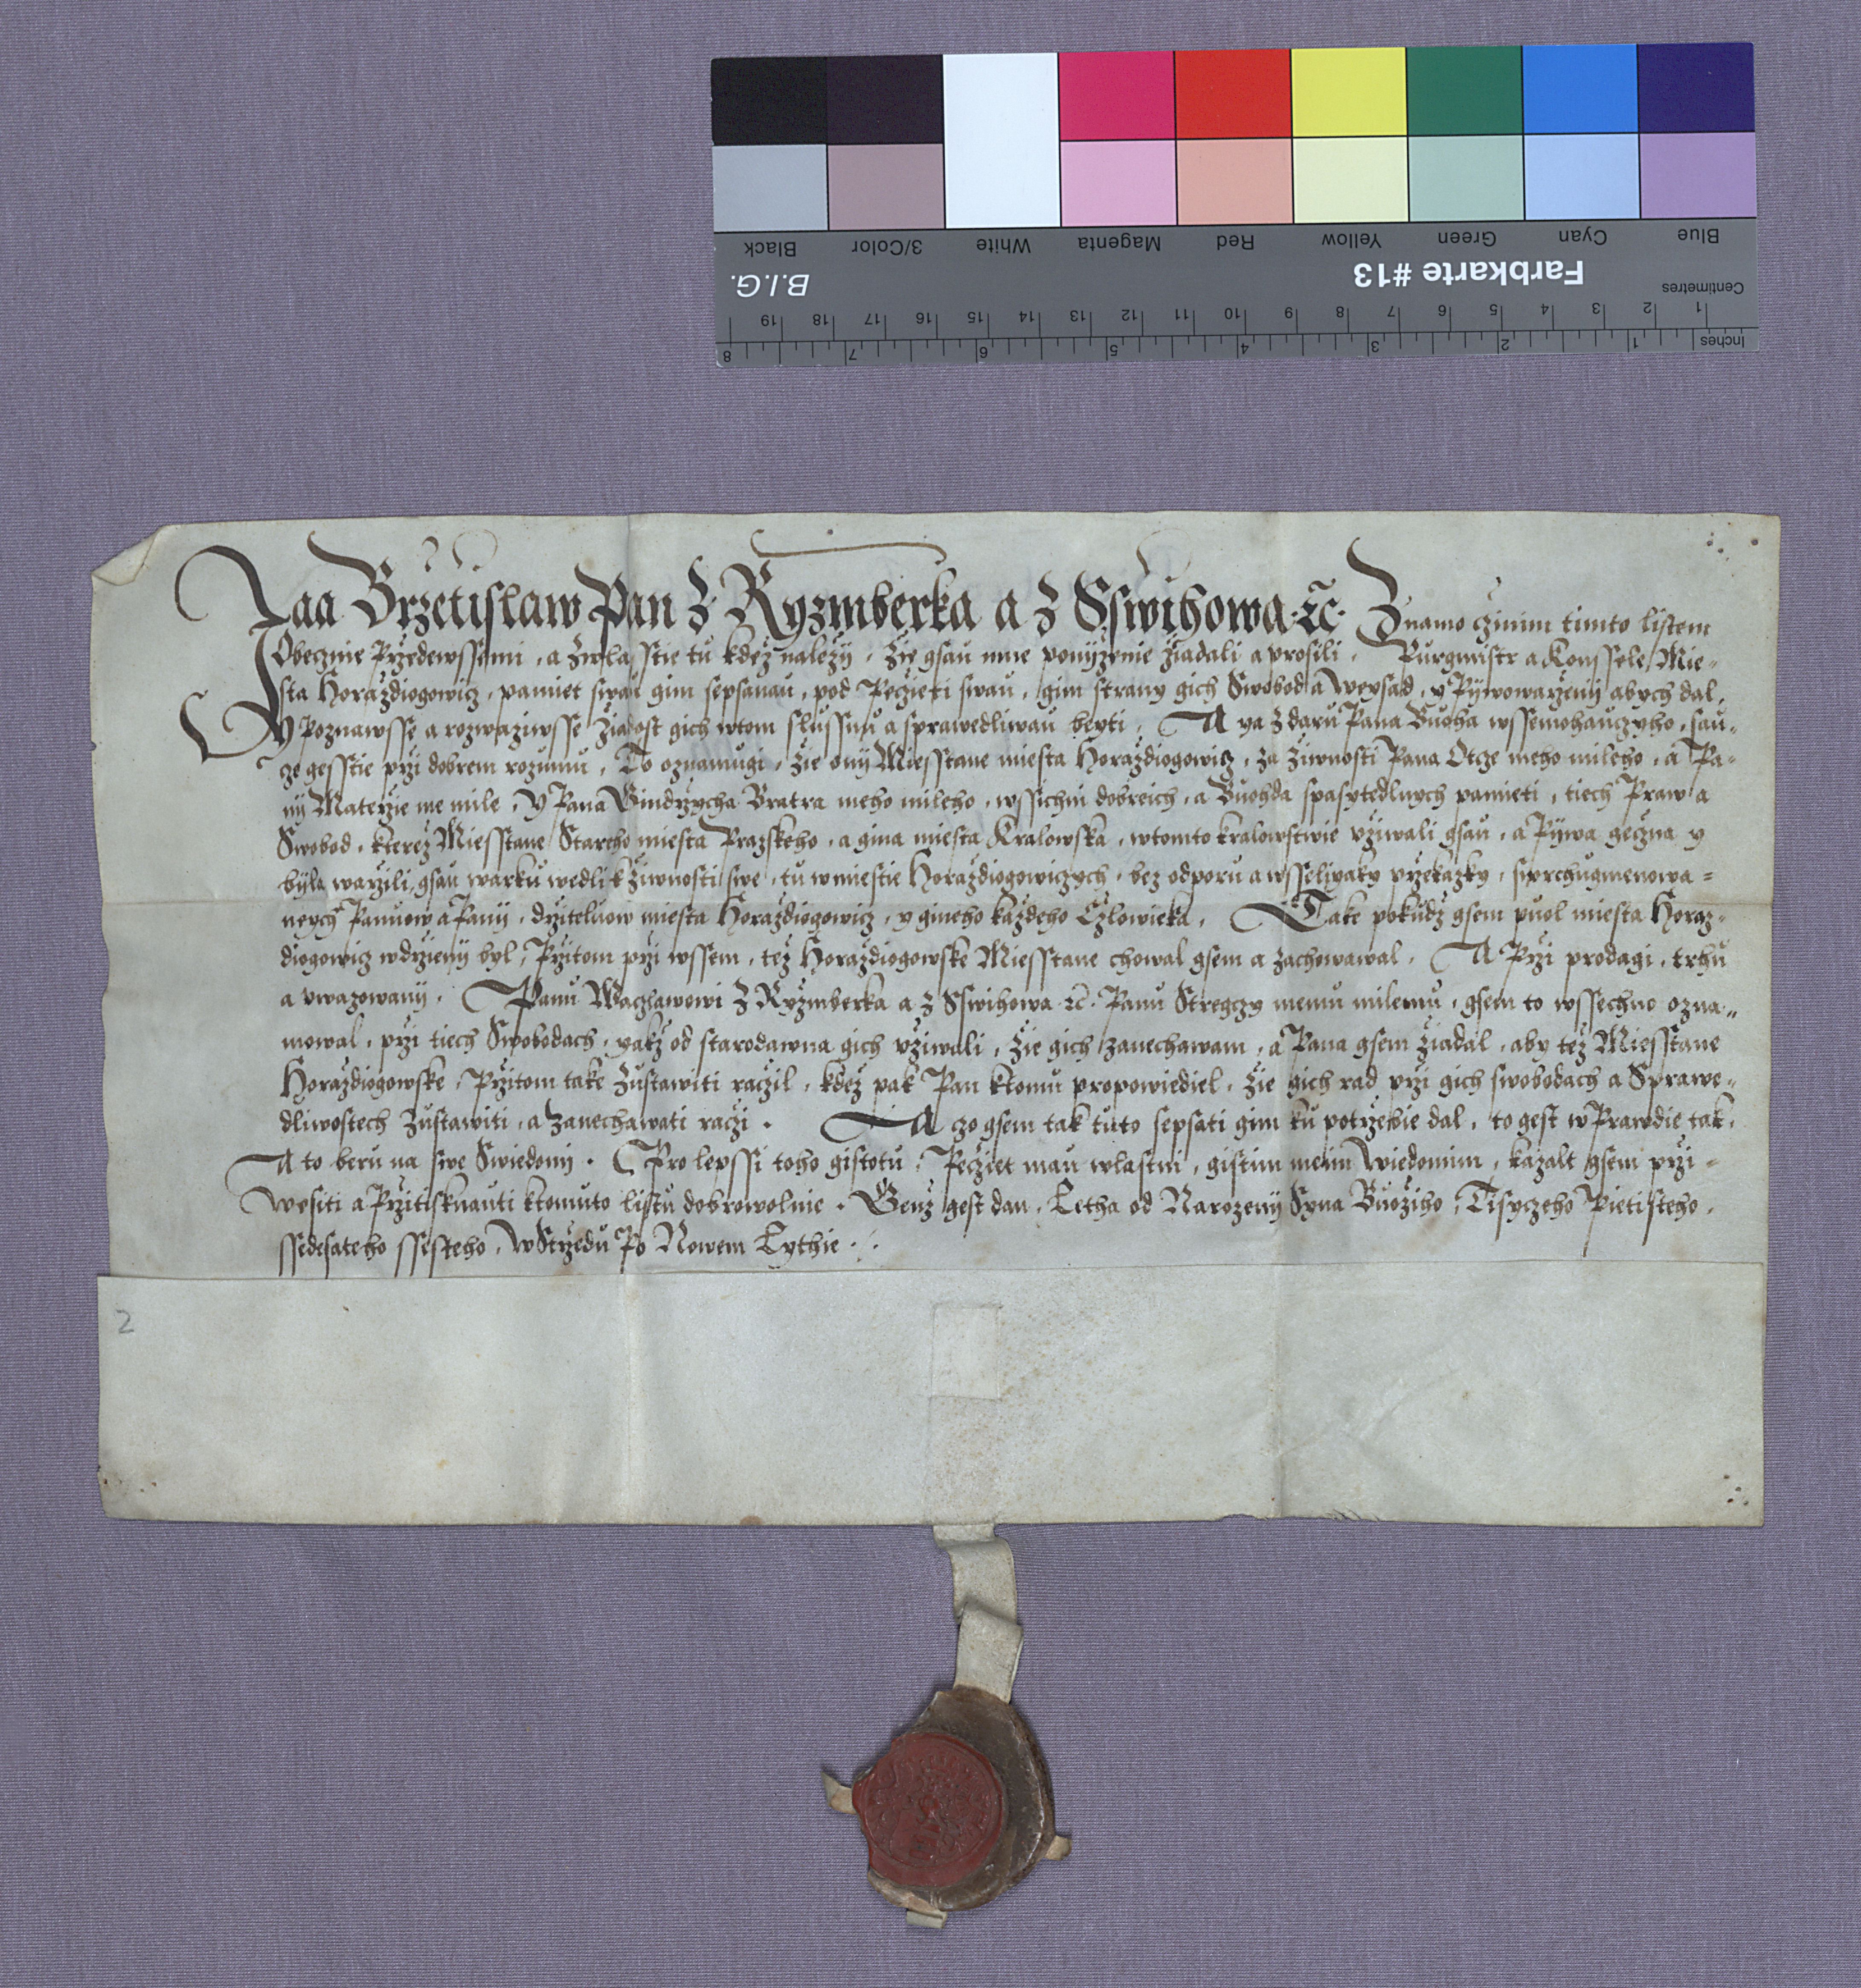 Blue Cyan Green Yellow Red Magenta White 3/Color Black
Farbkarte #13 B.I.G.
Centimetres
1 2 3 4 5 6 7 8 9 10 11 12 13 14 15 16 17 18 19
Inches 1 2 3 4 5 6 7 8
Jaa Brzetislaw Pan z Ryzmberka a z Sswihowa ꝛc. Znamo czinim timto listem
Obecznie Przedewssemi, a zwlasstie tu kdež naležy, žie gsau mne ponyženie žiadali a prosili, Purgmistr a Konssele Mie-
sta Horaždiogowicz, pamiet swau gim sepsanau, pod Peczieti swau, gim strany gich Swobod a Weysad, y Pywowarženij abych dal,
Y Poznawsse a rozwažiwsse Žiadost gich wtom slussnu a sprawedliwau beyti, A ya z daru Pana Buoha wssemohauczyho, sau-
cze gesstie przi dobrem rozumu, To oznamugi, žie onij Miesstane miesta Horaždiogowicz, za žiwnosti Pana Otcze meho mileho, a Pa-
nij Materžie me mile, Y Pana Gindržycha Bratra meho mileho, wssichni dobreich, a Buohda spasytedlnych pamieti, tiech Praw a
Swobod, kterež Miesstane Stareho miesta Pražskeho, a gina miesta Kralowska, wtomto kralowstwie vžiwali gsau, a Pywa geczna y
byla warzili, gsau warku wedlik žiwnosti swe, tu w miestie Horaždiogowiczych, bez odporu a wsseliyaky przekažky, swrchugmenowa-
neych Panuow a Panij, držiteluow miesta Horaždiogowicz, y gineho každeho Czlowieka, Take pokudž gsem puol miesta Horaz-
diogowicz wdrženij byl, Przitom przi wssem, tež Horaždiogowske Miesstane chowal gsem a zachowawal, A Przi prodagi, trhu
a vwazowanij, Panu Waczlawowi z Ryžmberka a z Sswihowa ꝛc. Panu Stregczy memu milemu, gsem to wssechno ozna-
mowal, przi tiech Swobodach, yakž od starodawna gich vžiwali, žie gich zanechawam, a Pana gsem žiadal, aby tež Miesstane
Horaždiogowske, Przitom take zustawiti raczil, kdež pak Pan ktomu propowiediel, žie gich rad przi gich swobodach a Sprawe-
dliwostech zustawiti, a zanechawati raczi. A czo gsem tak tuto sepsati gim ku potrzebie dal, to gest w Prawdie tak,
A to beru na swe Swiedomij. Pro lepssi toho gistotu, Pecziet mau wlastni, gistim meim Wiedomim, kazalt gsem przi-
wesiti a Przitisknauti ktomuto listu dobrowolnie. Genž gest dan, Letha od Narozenij Syna Buožiho, Tisyczeho Pietisteho,
ssedesateho ssesteho, W Stržedu Po Nowem Lethie.
2